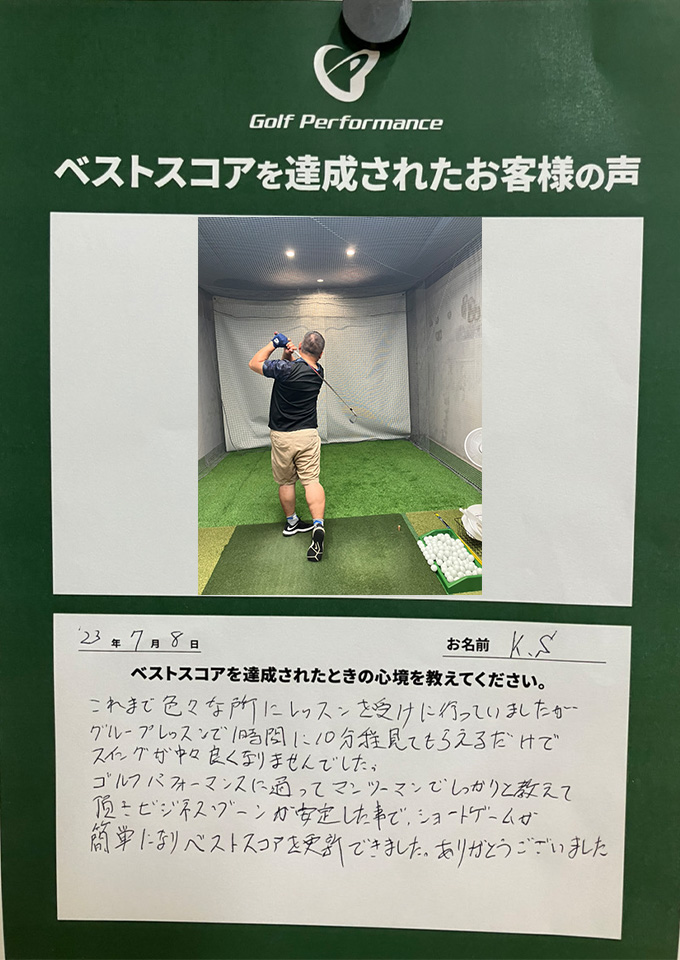 Golf Performance
ベストスコアを達成されたお客様の声
'23 年 7 月 8 日
お名前 K.S
ベストスコアを達成されたときの心境を教えてください。
これまで色々な所にレッスンを受けに行っていましたが
グループレッスンで1時間に10分程見てもらえるだけで
スイングが中々良くなりませんでした。
ゴルフパフォーマンスに通ってマンツーマンでしっかりと教えて
頂きビジネスゾーンが安定した事で、ショートゲームが
簡単になりベストスコアを更新できました。ありがとうございました